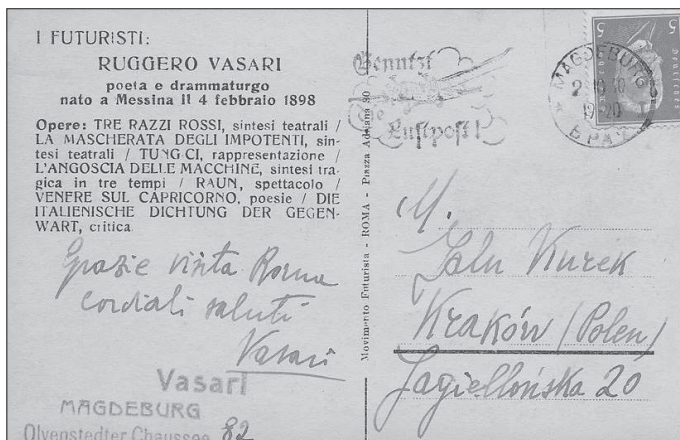 I FUTURISTI:
RUGGERO VASARI
poeta e drammaturgo
nato a Messina il 4 febbraio 1898
Opere: TRE RAZZI ROSSI, sintesi teatrali /
LA MASCHERATA DEGLI IMPOTENTI, sin-
tesi teatrali / TUNG-CI, rappresentazione /
L'ANGOSCIA DELLE MACCHINE, sintesi tra-
gica in tre tempi / RAUN, spettacolo /
VENERE SUL CAPRICORNO, poesie / DIE
ITALIENISCHE DICHTUNG DER GEGEN-
WART, critica
Grazie visita Roma
cordiali saluti
Vasari
Vasari
MAGDEBURG
Olvenstedter Chaussee 82
Movimento Futurista - ROMA - Piazza Adriana 30
Benutzt
die
Luftpost!
MAGDEBURG
5 5
M.
Jalu Kurek
Kraków (Polen)
Jagiellońska 20